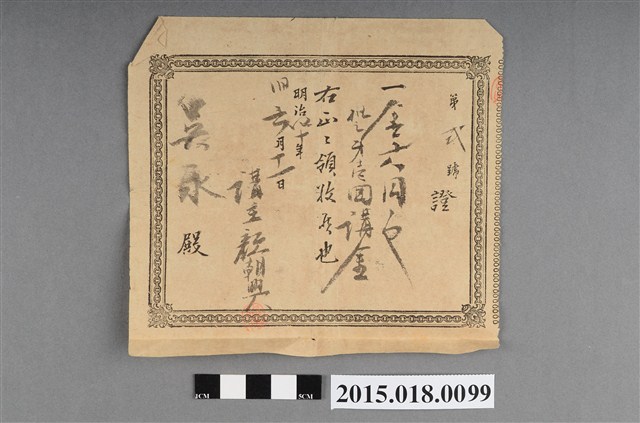 第弍號
證
一金六円也
第壱回講金
右正ニ領收候也
明治四十年
旧六月十一日
講主 顏朝興
吳永 殿
1CM 5CM
2015.018.0099